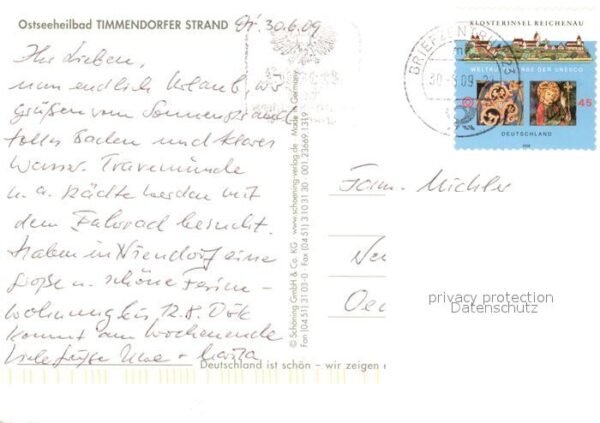 Ostseeheilbad TIMMENDORFER STRAND Di. 30.6.09
Ihr Lieben,
nun endlich Urlaub, wir
grüßen vom Sonnenstrand
tolles Baden und klares
Wasser. Travemünde
u. a. Städte werden mit
dem Fahrrad besucht.
Haben in Niendorf eine
große u. schöne Ferien-
wohnung bis 12.8.
kommt am Wochenende
Viele Grüße +
Deutschland ist schön – wir zeigen
© Schöning GmbH & Co. KG · www.schoening-verlag.de · Made in Germany
Fon (04 51) 3 10 3-0 · Fax (04 51) 3 10 31 30 · 001 23669 1319
KLOSTERINSEL REICHENAU
DER UNESCO
45
DEUTSCHLAND
BRIEFZENTRUM
Fam. Michler
privacy protection
Datenschutz